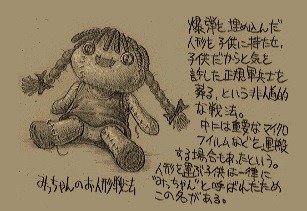 爆弾を埋め込んだ
人形を子供に持たせ、
子供だからと気を
許した正規軍兵士を
葬る、という非人道的
な戦法。
中には重要なマイクロ
フイルムなどを運搬
する場合もあたという。
人形を運ぶ子供は一様に
"みっちゃん"と呼ばれたため
この名がある。
みっちゃんのお人形戦法